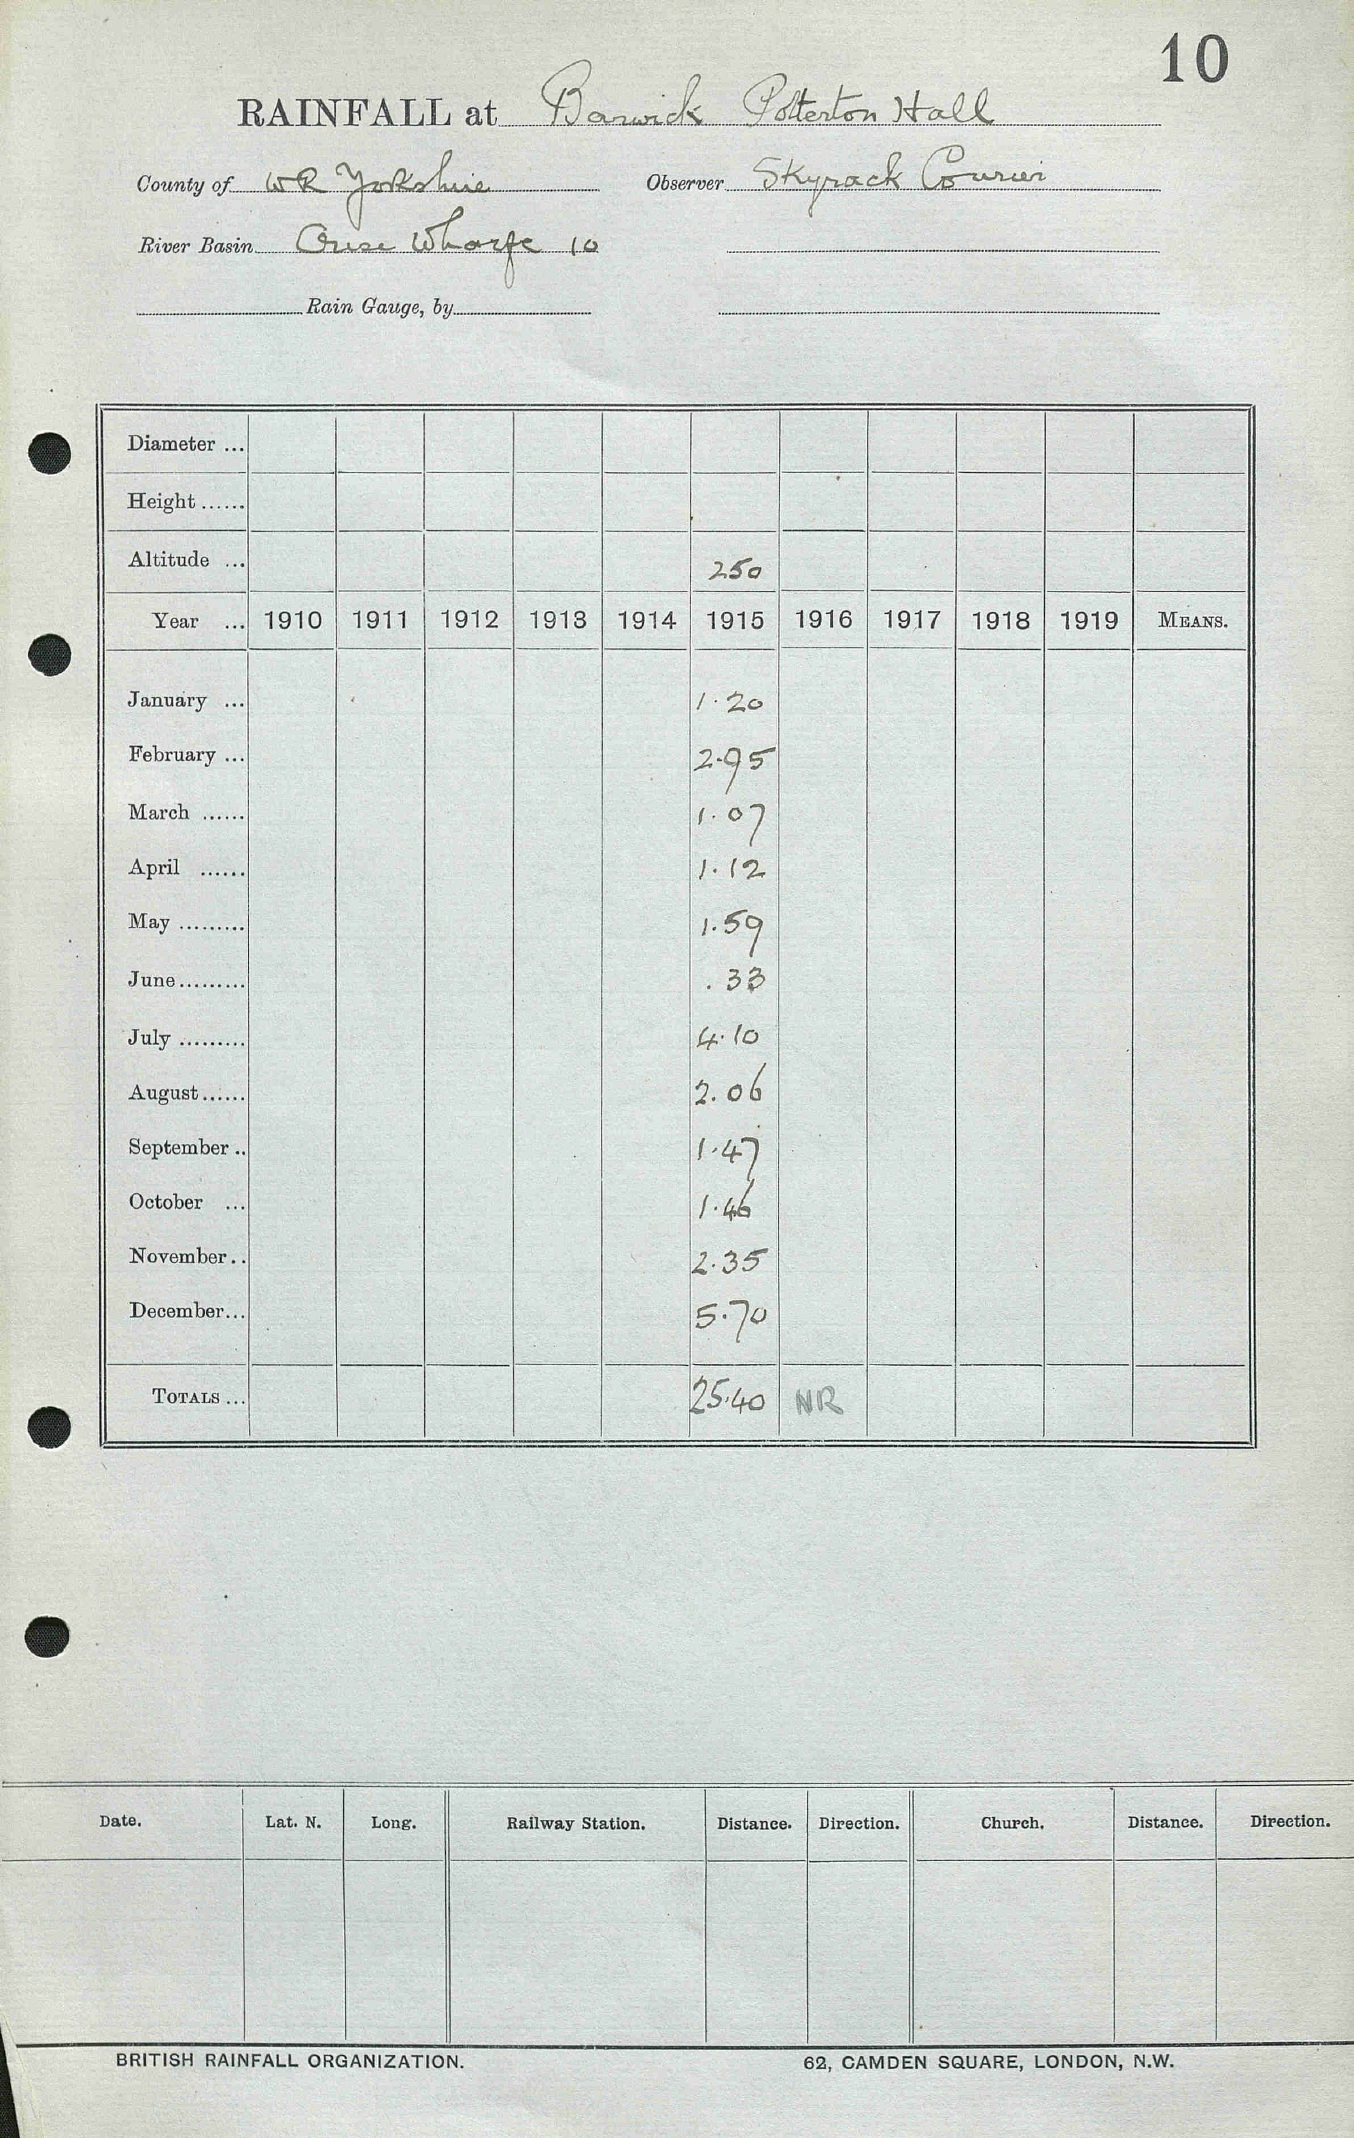 10
RAINFALL at Barwick Potterton Hall
County of WR Yorkshire Observer Skyrack Courier
River Basin Ouse Wharfe 10
Rain Gauge, by
Diameter ...
Height ......
Altitude ... 250
Year ... 1910 1911 1912 1913 1914 1915 1916 1917 1918 1919 MEANS.
January ... 1.20
February ... 2.95
March ...... 1.07
April ...... 1.12
May ......... 1.59
June ......... .33
July ......... 4.10
August ...... 2.06
September .. 1.47
October ... 1.46
November .. 2.35
December ... 5.70
TOTALS ... 25.40 NR
Date. Lat. N. Long. Railway Station. Distance. Direction. Church. Distance. Direction.
BRITISH RAINFALL ORGANIZATION. 62, CAMDEN SQUARE, LONDON, N.W.